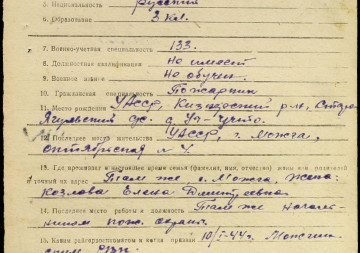 5. Национальность русский
6. Образование 3 кл.
7. Военно-учетная специальность 133.
8. Должностная квалификация Не имеет
9. Военное звание Не обучен.
10. Гражданская специальность Пожарник
11. Место рождения УАССР, Кизнерский р-н,
с/с. д.
12. Последнее место жительства УАССР, г. Можга,
октябрьская № 4.
13. Где проживает в настоящее время семья (фамилия, имя, отчество) жены или родителей
и точный их адрес Там же г. Можга, жена
Козлова Елена Дмитриевна
14. Последнее место работы и должность Там же началь-
ником пож. охран.
15. Каким райгорвоенкоматом и когда призван 10/I-44г. Можгин-
ским РВК.